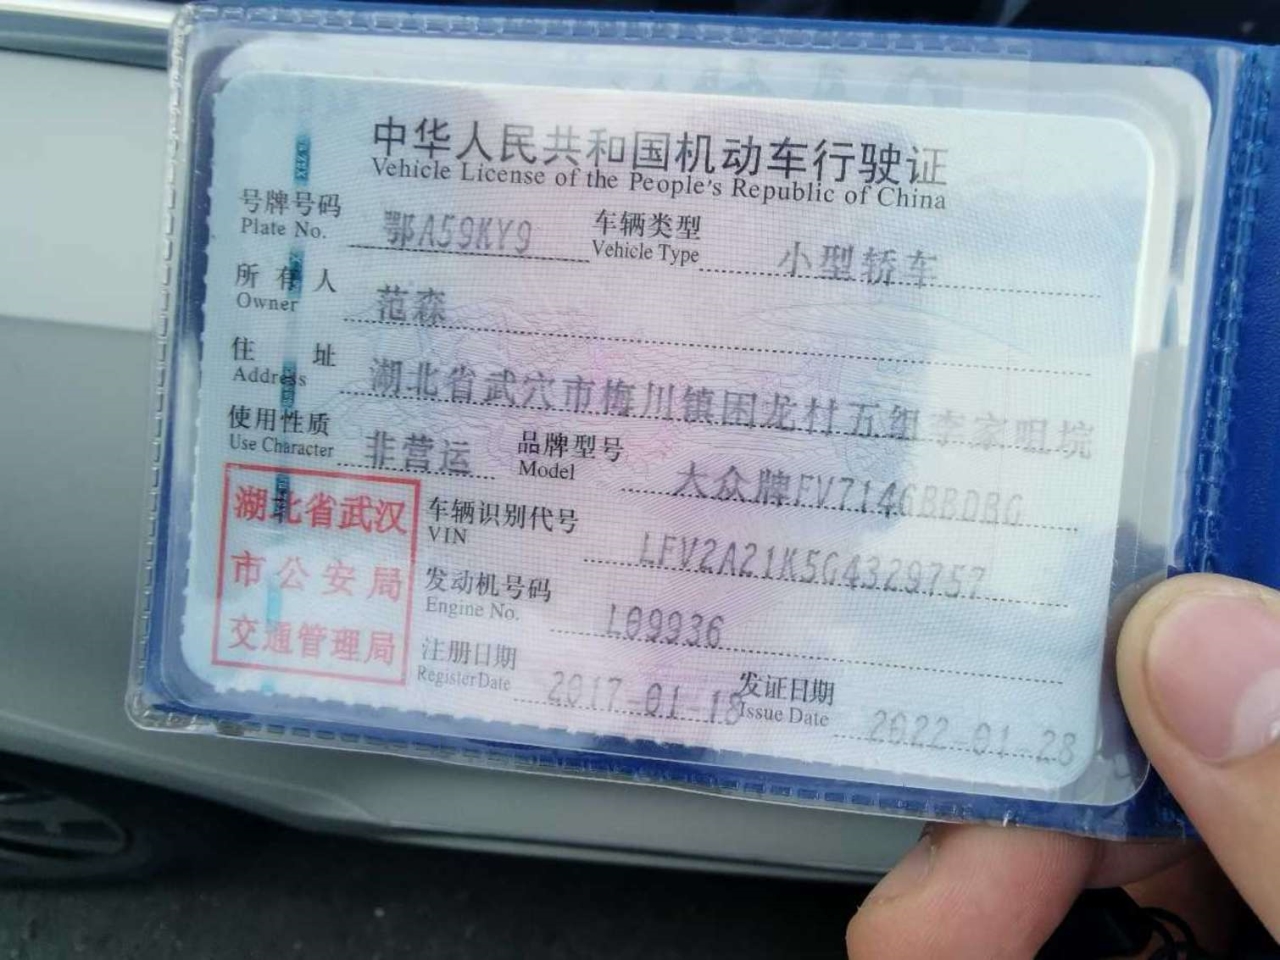 中华人民共和国机动车行驶证
Vehicle License of the People's Republic of China
号牌号码 鄂A59KY9 车辆类型 小型轿车
Plate No. Vehicle Type
所有人 范森
Owner
住址 湖北省武穴市梅川镇困龙村五组李家咀垸
Address
使用性质 非营运 品牌型号 大众牌FV7146BBDBG
Use Character Model
湖北省武汉
市公安局
交通管理局
车辆识别代号 LFV2A21K5G4329757
VIN
发动机号码 L09936
Engine No.
注册日期 2017-01-18 发证日期 2022-01-28
Register Date Issue Date